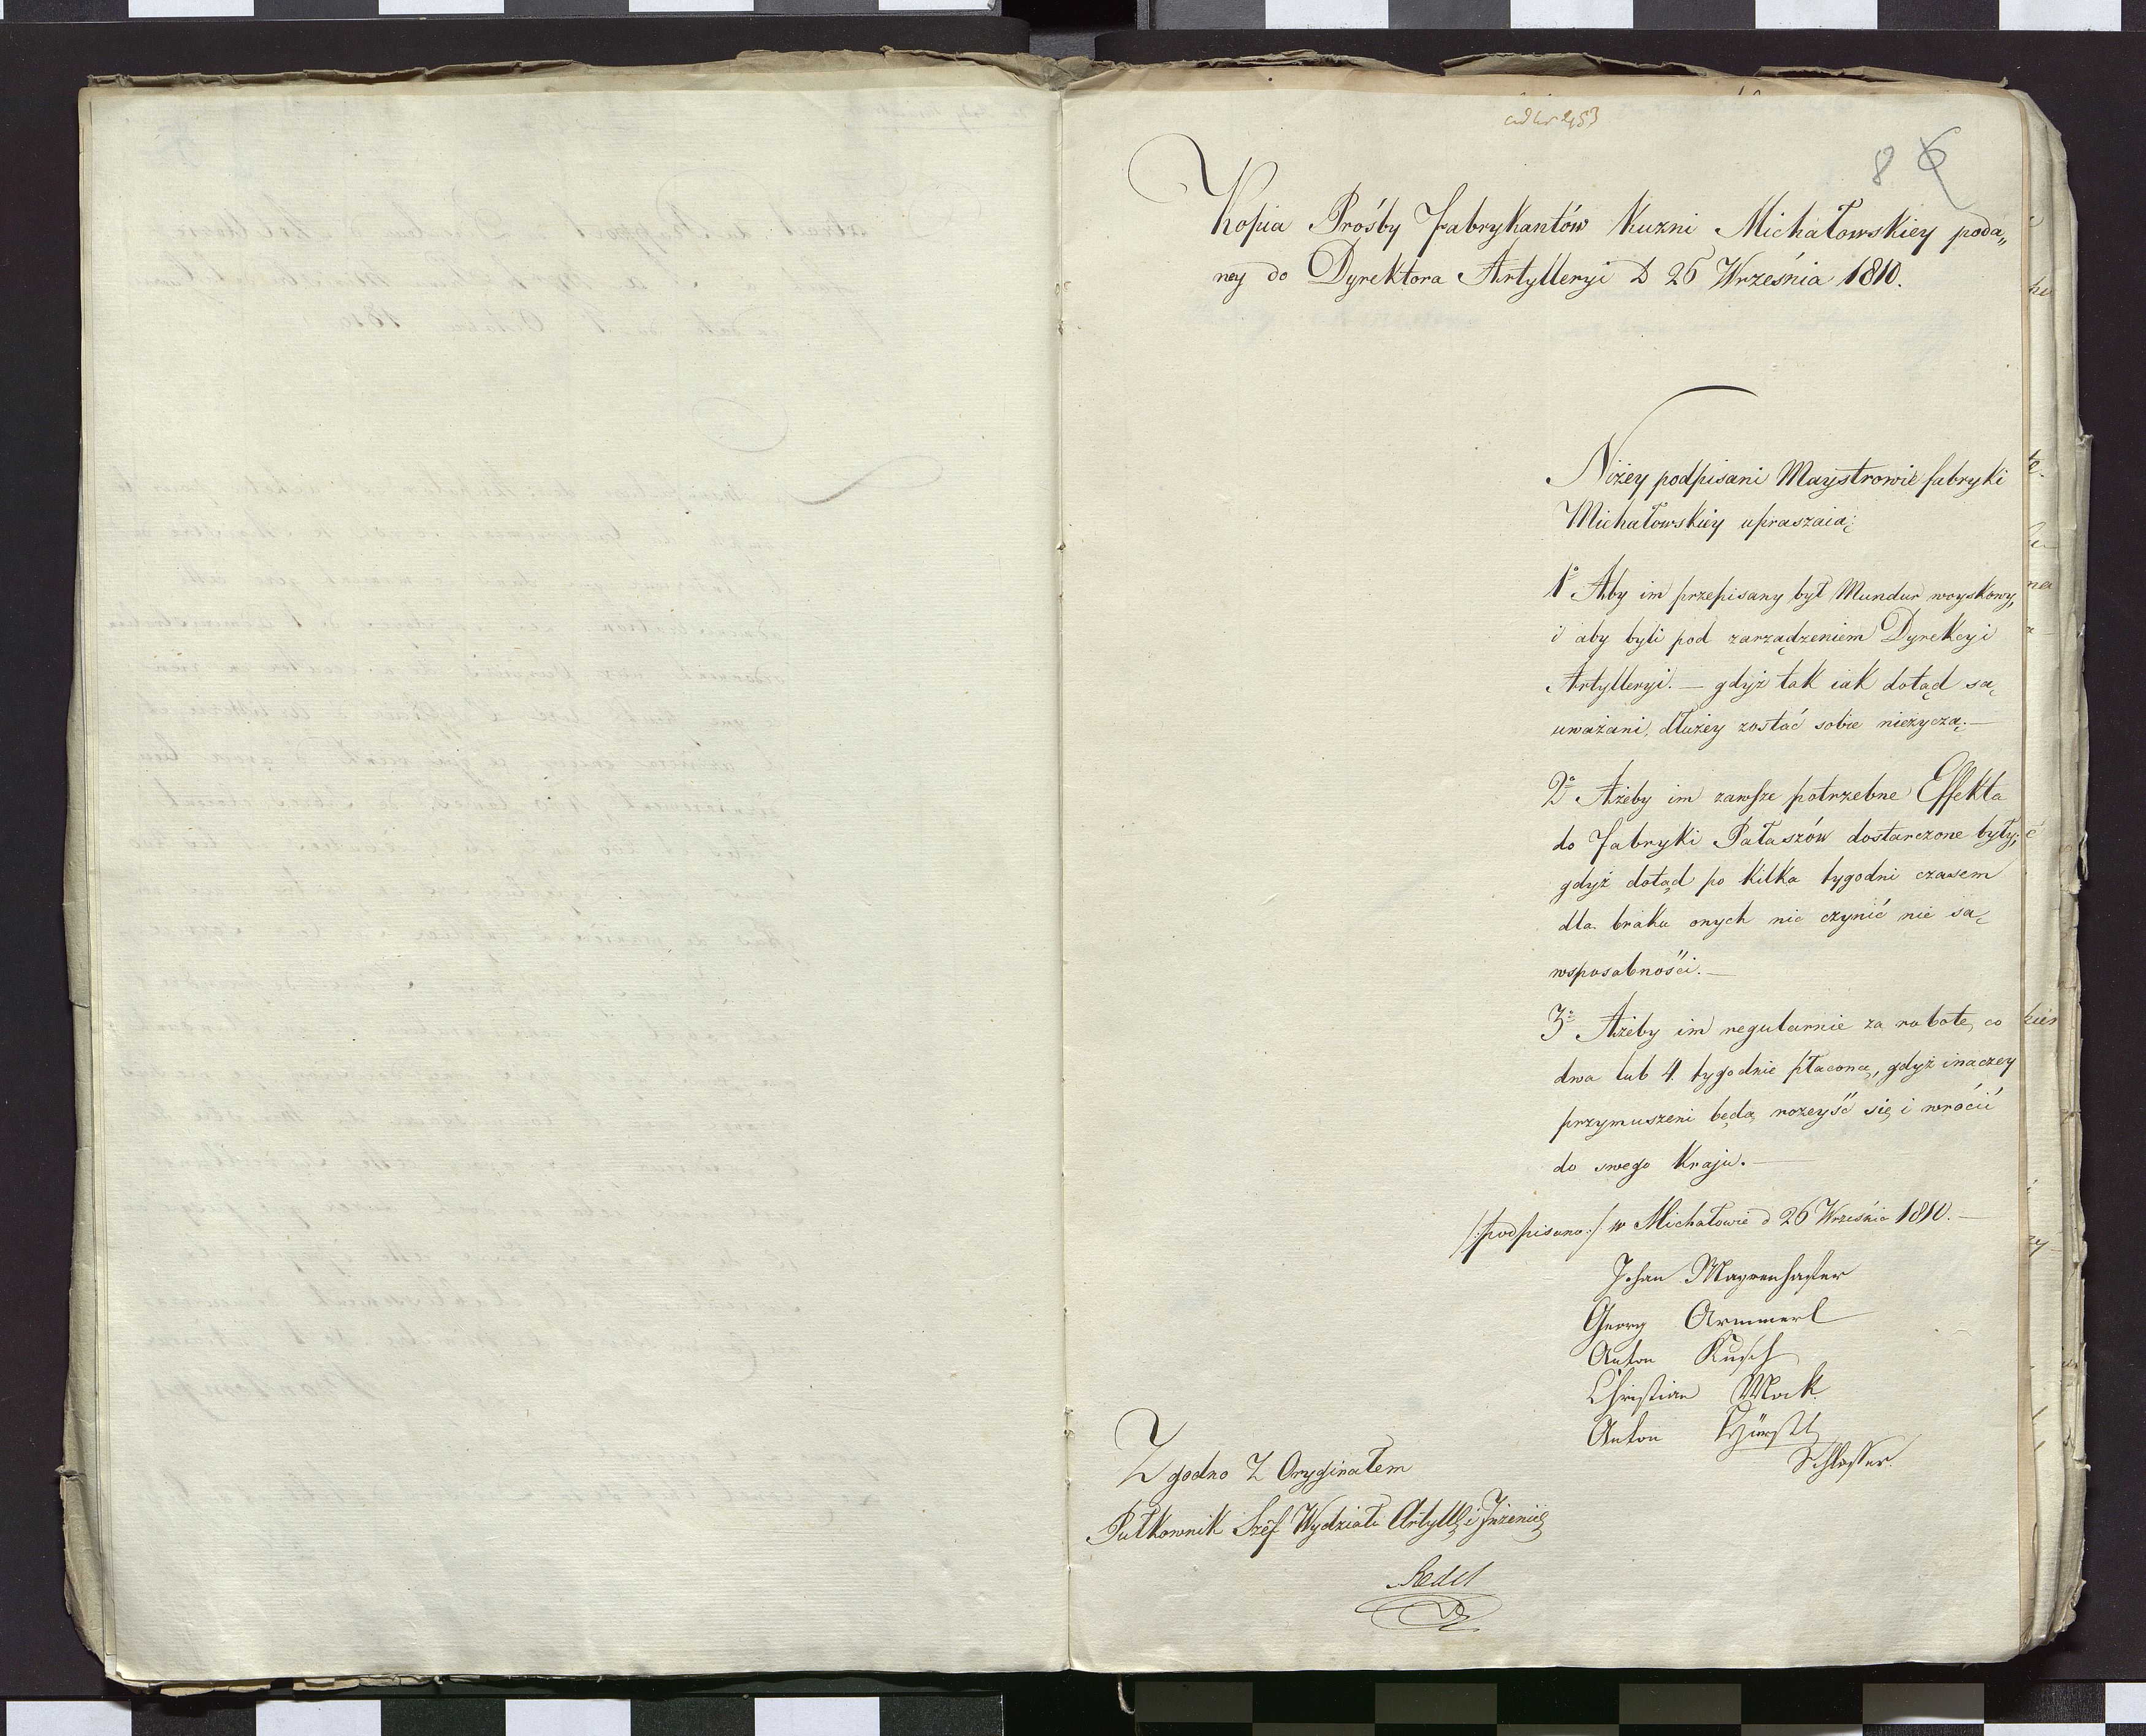 ad Nr 253
8 6
Kopia Prośby Fabrykantów Kuzni Michałowskiey poda„
ney do Dyrektora Artylleryi D 26 Września 1810.
Niżey podpisani Maystrowie fabryki
Michałowskiey upraszaią:
1º Aby im przepisany był Mundur woyskowy,
i aby byli pod zarządzeniem Dyrekcyi
Artylleryi. — gdyż tak iak dotąd są
uważani, dłużey zostać sobie nieżyczą. —
2º Ażeby im zawsze potrzebne Effekta
do Fabryki Pałaszów dostarczone były;
gdyż dotąd po kilka tygodni czasem
dla braku onych nic czynić nie są
wsposobności. —
3º Ażeby im regularnie za robotę co
dwa lub 4. tygodnie płacono, gdyż inaczey
przymuszeni będą rozeyść się i wrócić
do swego Kraju. —
/:podpisano:/ w Michałowie d 26 Września 1810. —
Johan Mayrenhafter
Georg Armmerl
Anton Kusch
Christian Mock
Anton
Schlosser.
Zgodno Z Oryginałem
Pułkownik Szef Wydziału Artylly i Jnżenii
Redel